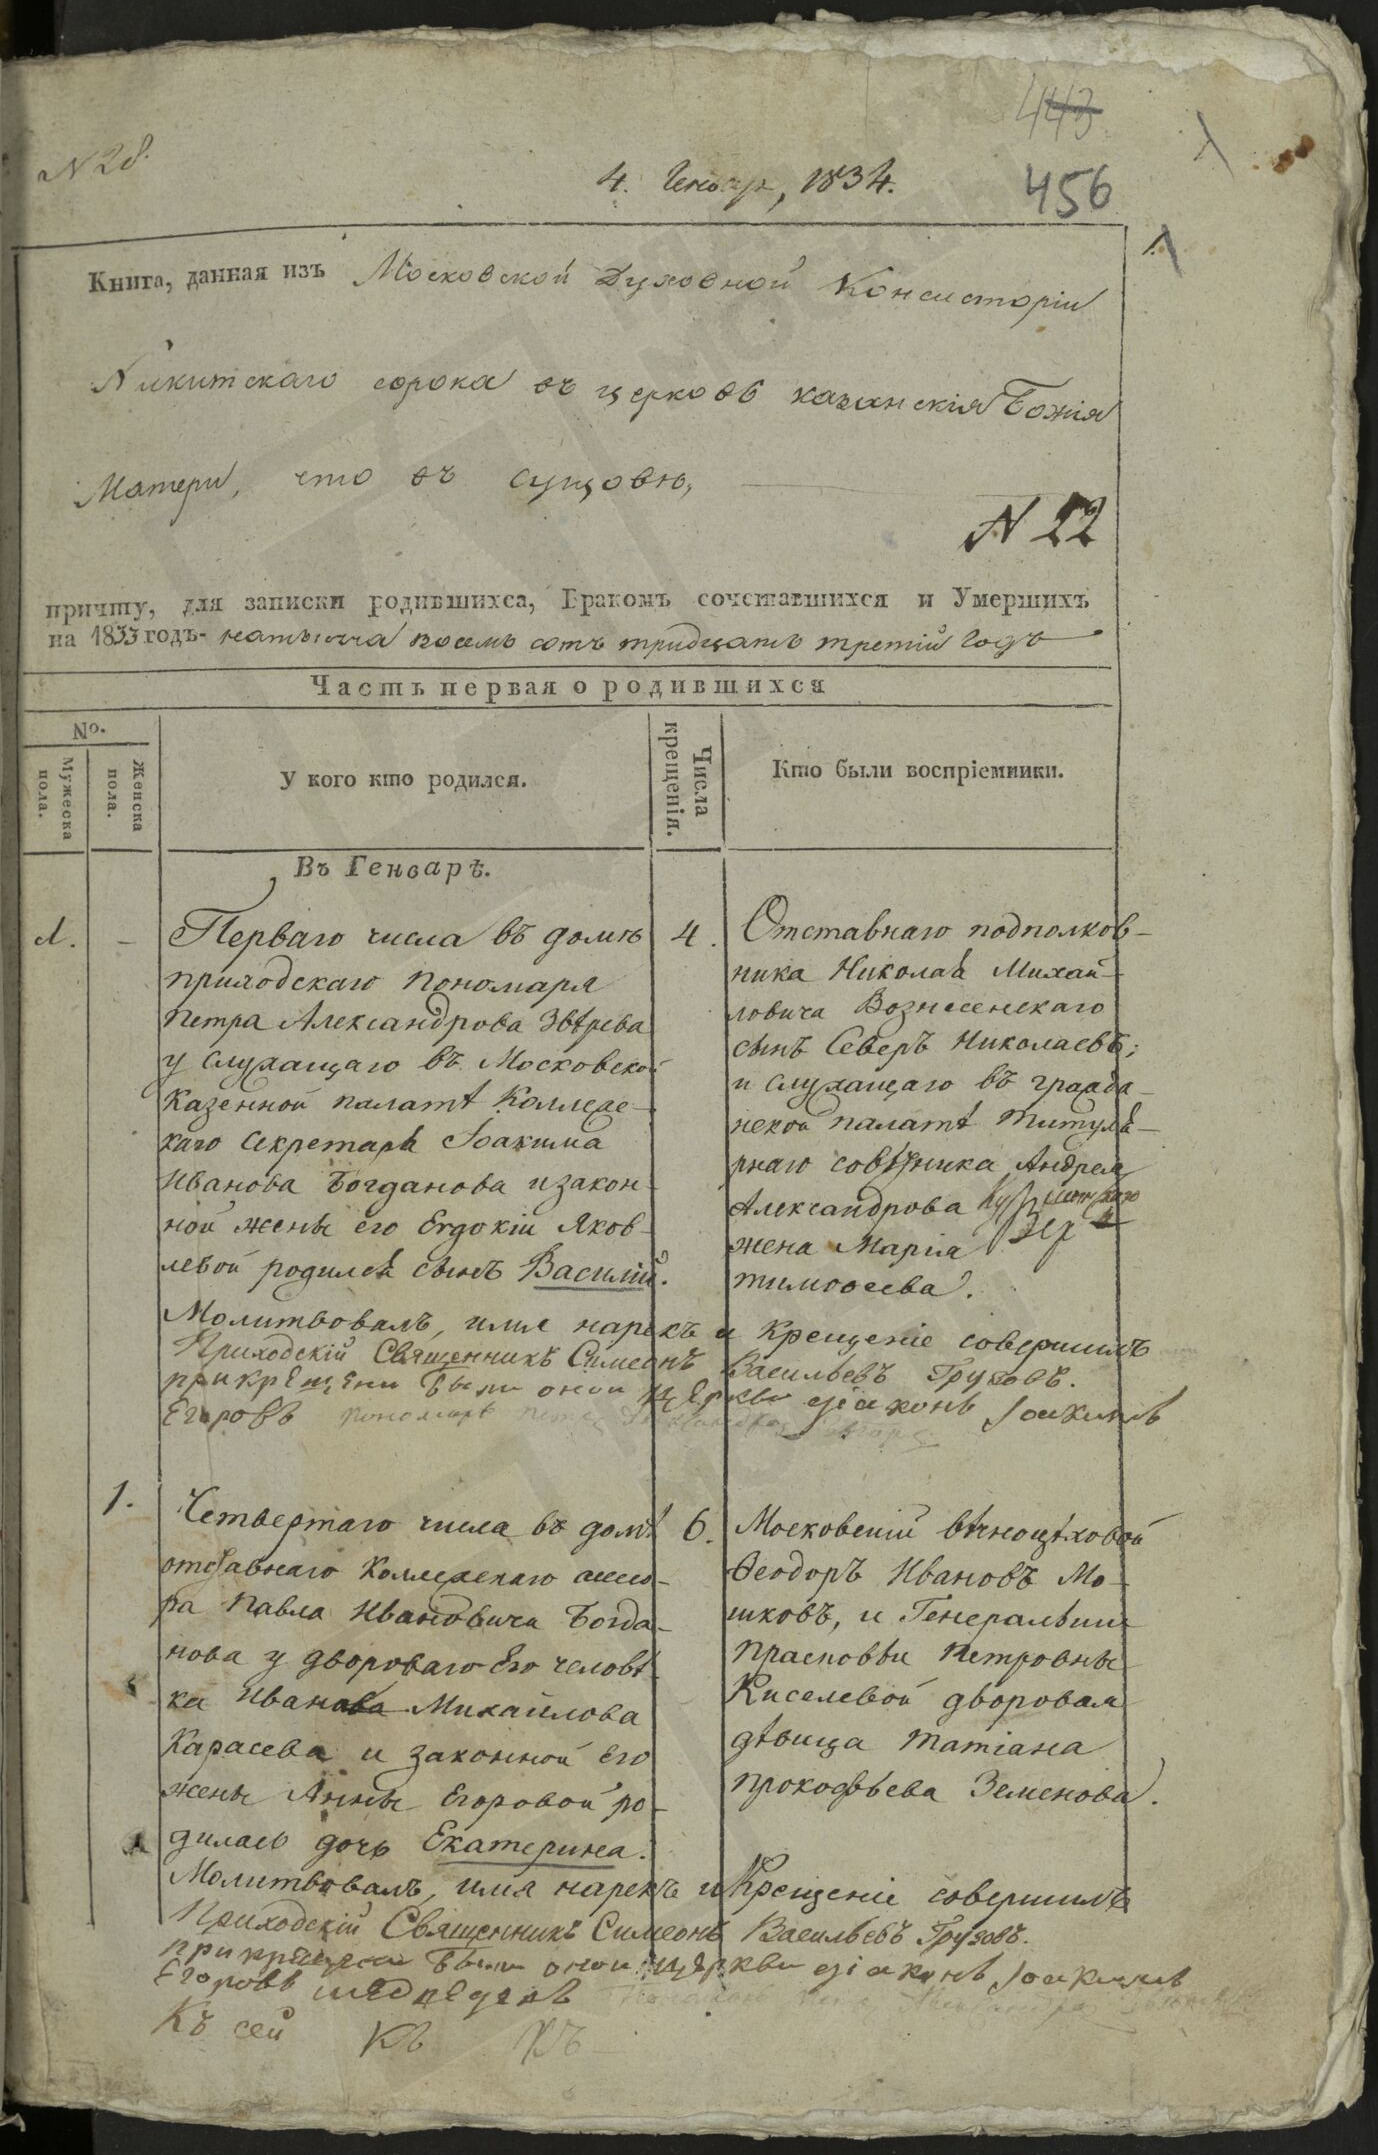 443
N 28.
4. Генваря, 1834.
456
1.
Книга, данная изъ Московской Духовной Консисторіи
Никитскаго сорока въ церковь казанскія Божія
Матери, что въ Сущовѣ,
N 22
причту, для записки родившихся, Бракомъ сочетавшихся и Умершихъ
на 1833 годъ - на тысяча восемь сотъ тридцать третій годъ
Часть первая о родившихся
No.
Мужеска пола.
Женска пола.
У кого кто родился.
Числа крещенія.
Кто были воспріемники.
Въ Генварѣ.
1. -
Перваго числа въ домѣ
приходскаго пономаря
Петра Александрова Звѣрева
у служащаго въ Московской
Казенной палатѣ Коллеже-
каго Секретаря Іоакима
Иванова Богданова и закон-
ной жены его Евдокіи Яков-
левой родился сынъ Василій.
4.
Отставнаго подполков-
ника Николая Михай-
ловича Вознесенскаго
сынъ Северъ Николаевъ;
и служащаго въ гражда-
нской палатѣ титуля-
рнаго совѣтника Андрея
Александрова
жена Марія
тимоѳеева.
Молитвовалъ, имя нарекъ и крещеніе совершилъ
Приходскій Священникъ Симеонъ Васильевъ Грузовъ.
при крещении были оной церкви діаконъ Іоакимъ
Егоровъ пономарь Петръ
1.
Четвертаго числа въ домѣ
отставнаго Коллежскаго ассесо-
ра Павла Ивановича Богда-
нова у двороваго Его человѣ-
ка Ивана Михайлова
Карасева и законной Его
жены Анны Егоровой ро-
дилась дочь Екатерина.
6.
Московскій вѣчноцѣховой
Ѳеодоръ Ивановъ Мо-
шковъ, и Генеральши
Прасковьи Петровны
Киселевой дворовая
дѣвица Татіана
Прокофьева Земенова.
Молитвовалъ, имя нарекъ и Крещеніе совершилъ
Приходскій Священникъ Симеонъ Васильевъ Грузовъ.
при крещении были оной церкви діаконъ Іоакимъ
Егоровъ
Къ сей Къ Къ